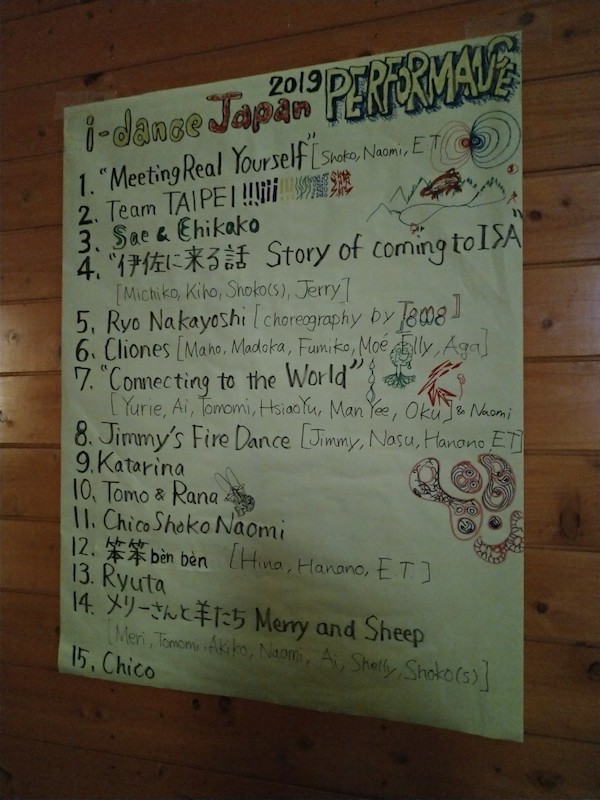 i-dance Japan 2019 PERFORMANCE
1. "Meeting Real Yourself" [Shoko, Naomi, E.T
2. Team TAIPEI !!!
3. Sae & Chikako
4. "伊佐に来る話 Story of coming to ISA"
[Michiko, Kiho, Shoko(s), Jerry]
5. Ryo Nakayoshi [choreography by ]
6. Cliones [Maho, Madoka, Fumiko, Moé, Aga]
7. "Connecting to the World"
[Yurie, Ai, Tomomi, HsiaoYu, Man Yee, Oku] & Naomi
8. Jimmy's Fire Dance [Jimmy, Nasu, Hanano ET]
9. Katarina
10. Tomo & Rana
11. Chico Shoko Naomi
12. 笨笨 bèn bèn [Hina, Hanano, E.T.]
13. Ryuta
14. メリーさんと羊たち Merry and Sheep
[Meri, Tomomi, Akiko, Naomi, Ai, Shelly, Shoko(s)]
15. Chico